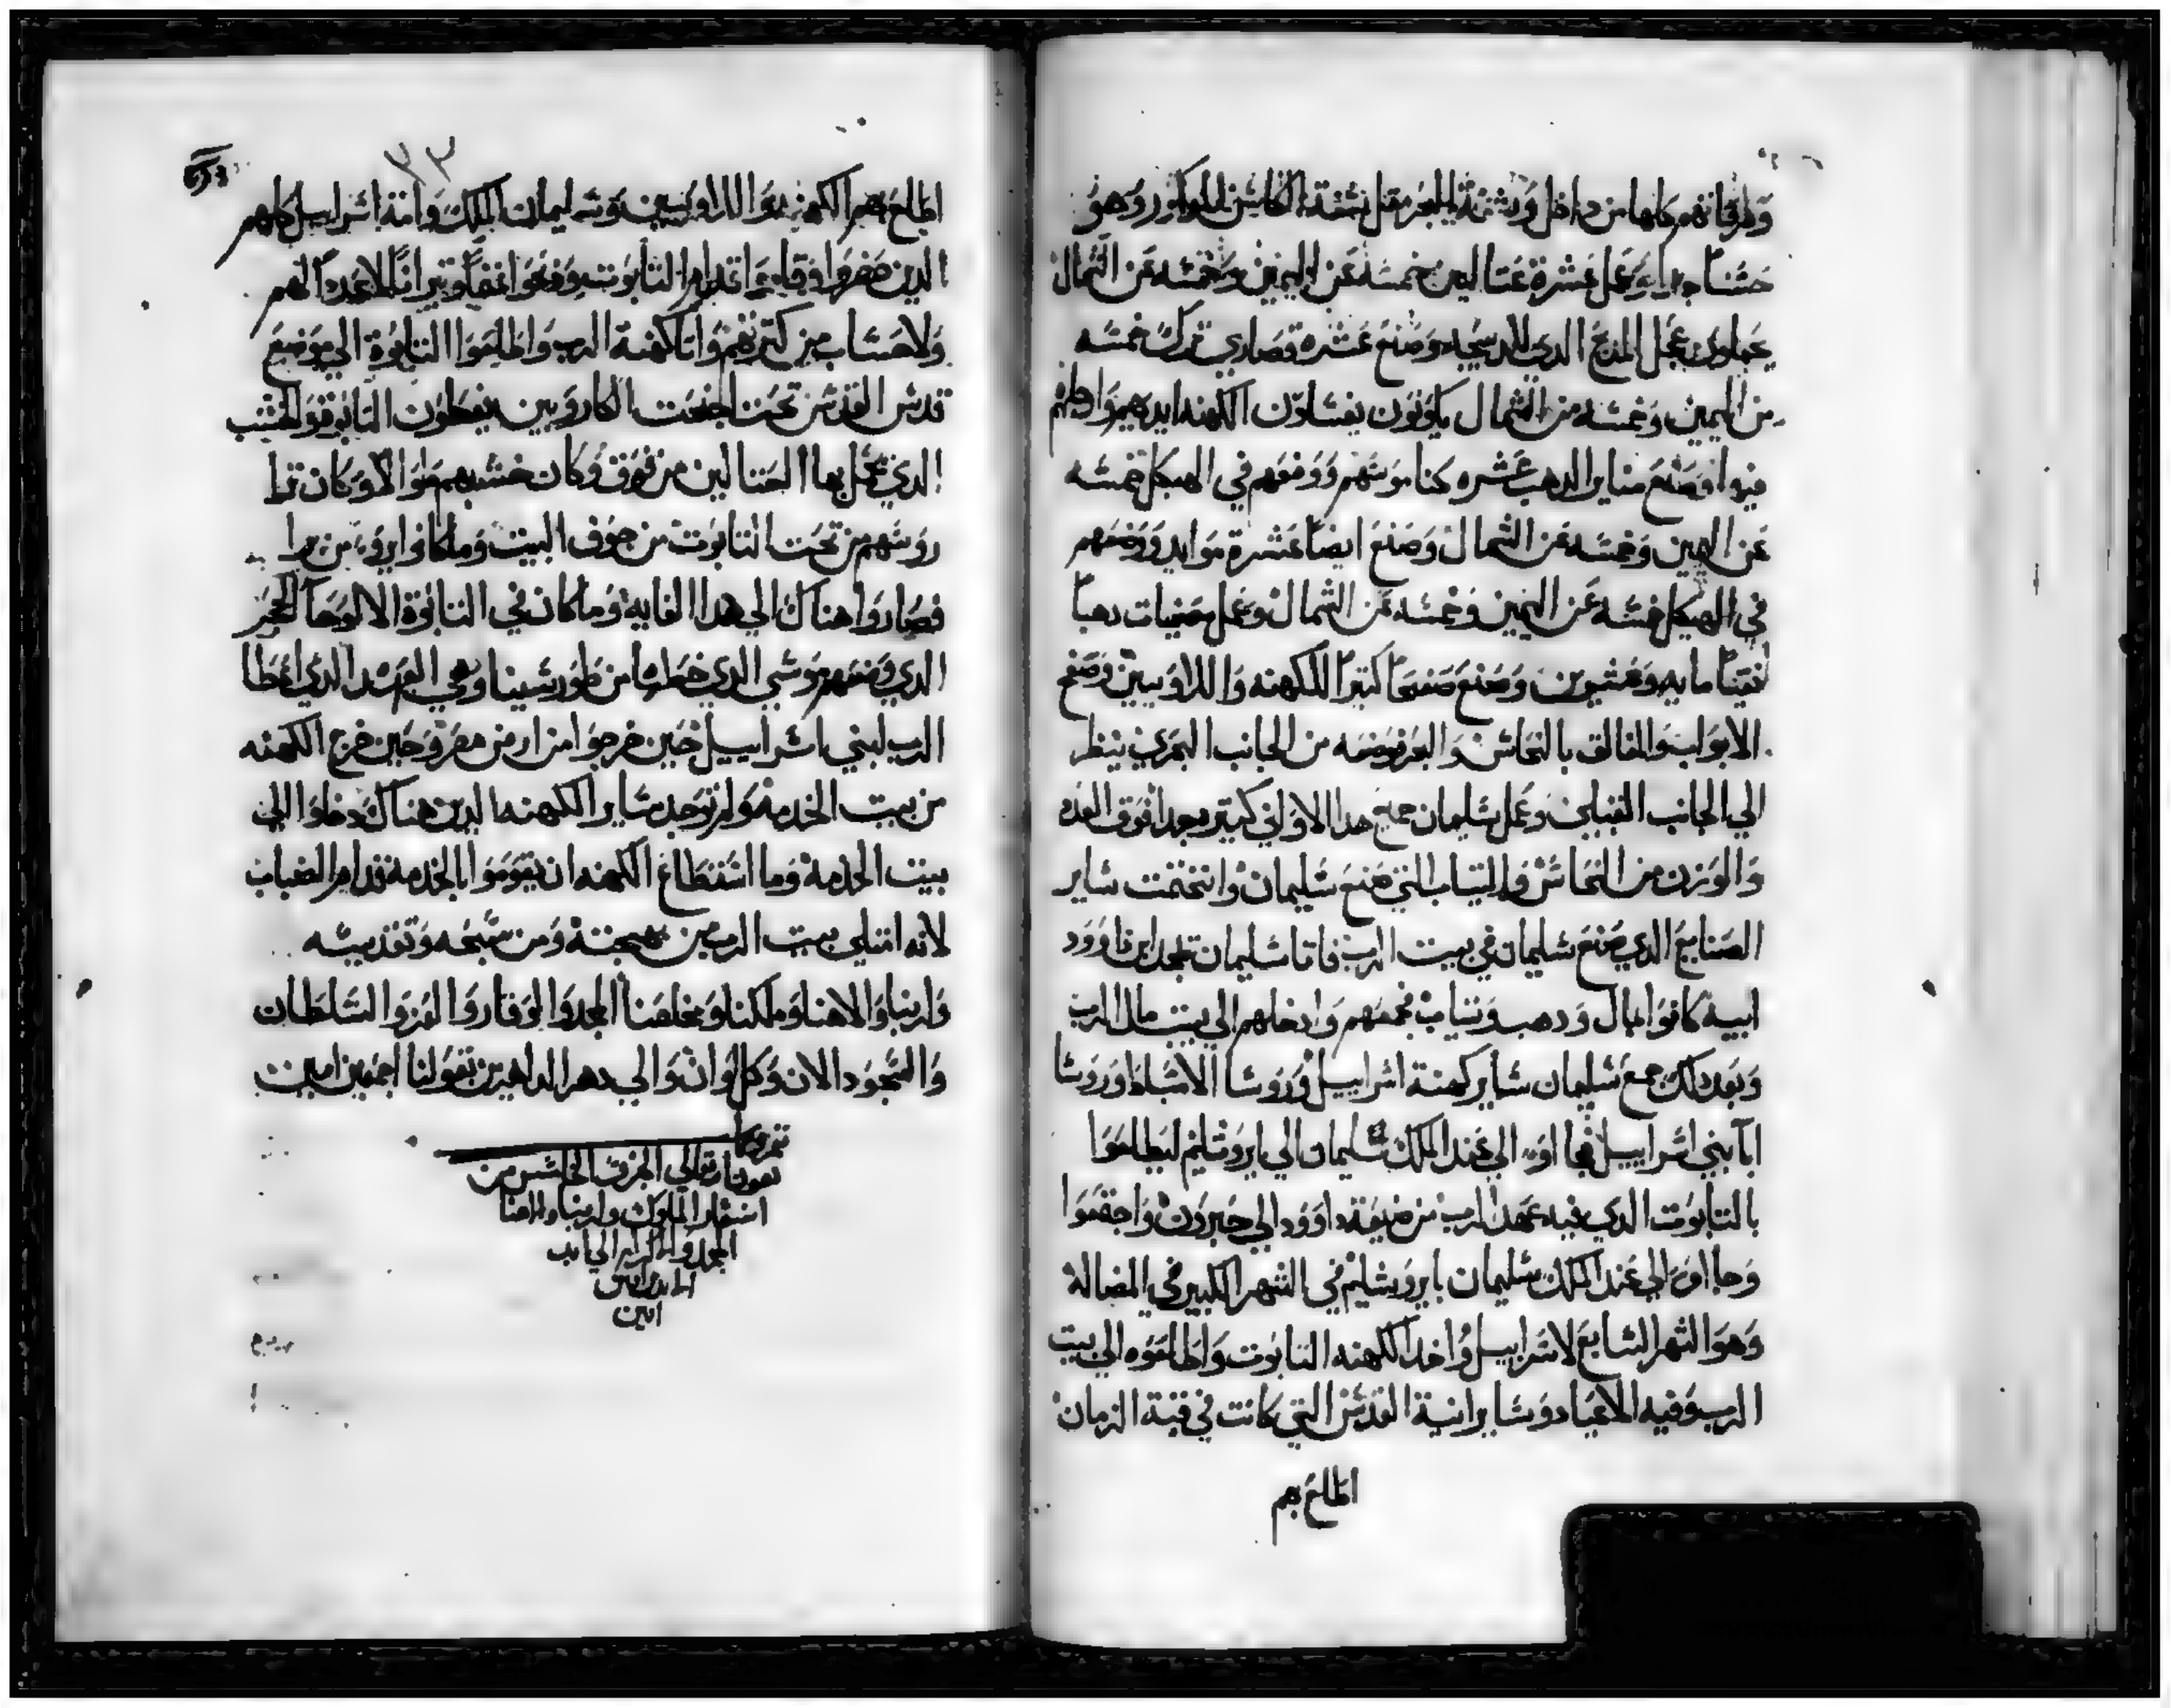 وظرفانهم كلها من داخل وشفة البحر مثل شفة الكاس المدكور وهو
حسنا جدا وعمل عشرة عتاليين خمسه عن اليمين وخمسه عن الشمال
عجل المدبح الدي للدبيحه وصنع عشره قصاري ترك خمسه
من اليمين وخمسه من الشمال يكونون يغسلون الكهنه ايديهم وارجلهم
فيها وصنع مناير الدهب عشره كناموسهم ووضعهم في الهيكل خمسه
عن اليمين وخمسه عن الشمال وصنع ايضا عشرة موايد ووضعهم
في الهيكل خمسه عن اليمين وخمسه عن الشمال وعمل صينيات دهبا
نقيا مايه وعشرين وصنع صنعا كتيرا للكهنه واللاويين وصنع
الابواب والمغالق بالنحاس والبحر وضعه من الجانب البحري ينظر
الي الجانب القبلي وعمل سليمان جميع هدا الاواني كتير جدا فوق العدد
والوزن من النحاس والتياب التي صنع سليمان وانختمت ساير
الصنايع الدي صنع سليمان في بيت الرب فاتا سليمان داوود
ابيه كانوا مال ودهب وتياب فجمعهم وادخلهم الي بيت مال الرب
وبعد دلك جمع سليمان ساير كهنة اسراييل وروسا الاسباط وروسا
ابا بني اسراييل فجا اوه الي عند الملك سليمان الي ايروشليم ليطلعوا
بالتابوت الدي فيه عهد الرب من ضيعة داوود الي حبرون واجتمعوا
وجا اوه الي عند الملك سليمان بايروشليم في الشهر الكبير في المضاله
وهو الشهر السابع لاسراييل واخد الكهنه التابوت واطلعوه الي بيت
الرب وفيه الاعياد وساير انية القدس التي كانت في قبة الزمان
اطلع بهم
٣٣
اطلع بهم الكهنه واللاويين وسليمان الملك وامة اسراييل كلهم
الدين حضروا وقاموا قدام التابوت ودبحوا غنما وتيرانا لا عددا لهم
ولا حساب من كترتهم واتا كهنة الرب واطلعوا التابوة الي موضع
قدس القدس تحت اجنحت الكاروبين يغطون التابوة والخشب
الدي عمل بها العتاليين من فوق وكان خشبهم طوال وكان ترا
روسهم من تحت التابوت من جوف البيت وما كانوا يروه من برا
فصاروا هناك الي هدا الغايه وما كان في التابوة الا لوحا الحجر
الدي وضعهم موسي الدي خطها من طور سينا وهي العهد الدي اعطا
الرب لبني اسراييل حين خرجوا من ارض مصر وحين خرج الكهنه
من بيت الخدمه ولم توجد ساير الكهنه الدين هناك دخلوا الي
بيت الخدمة وما استطاع الكهنه ان يقوموا بالخدمة قدام الضباب
لانه امتلي بيت الرب من بهجته ومن سبحه وتقديسه
ولربنا والاهنا وملكنا ومخلصنا المجد والوقار والعز والسلطان
والسجود الان وكل اوان والي دهر الداهرين بقولنا اجمعين امين
تم وكمل
بعون الله تعالي الجزو الخامس من
اسفار الملوك ولربنا والاهنا
المجد والاكرام الي ابد
الابدين امين
امين